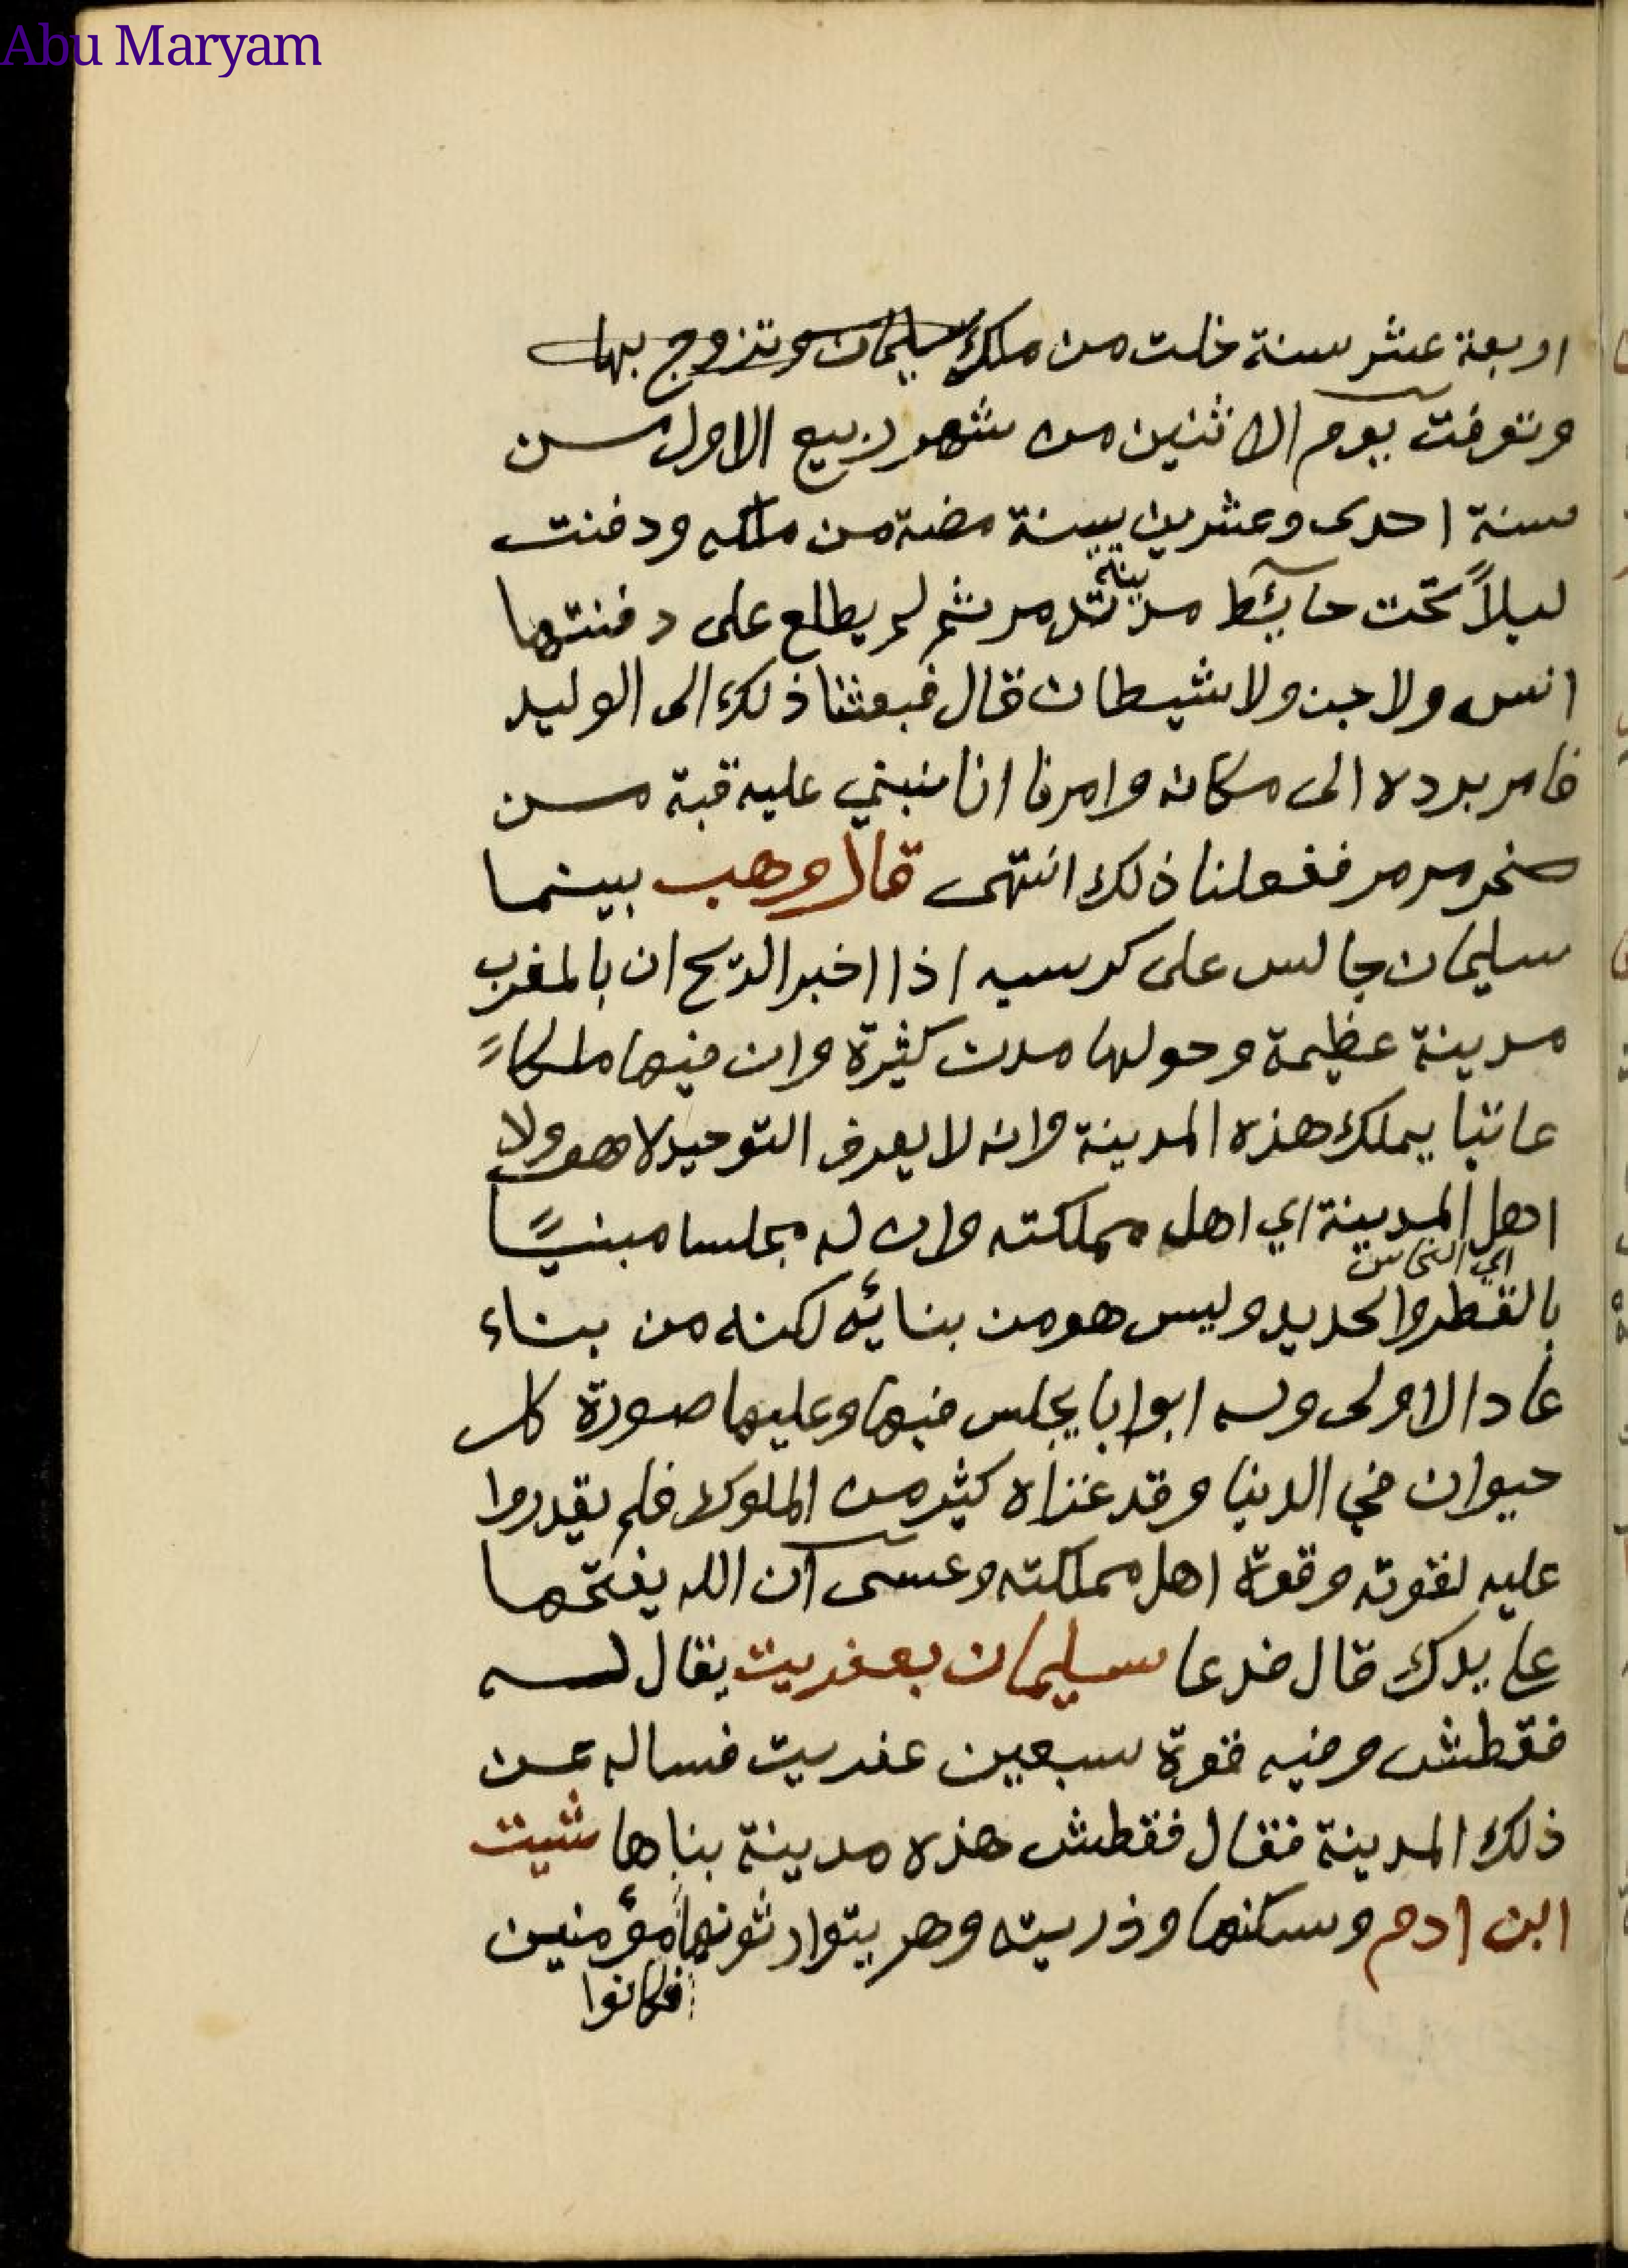 Abu Maryam
اربعة عشر سنة خلت من ملك سليمان وتزوج بها
وتوفت يوم الاثنين من شهر ربيع الاول من
سنة احدى وعشرين سنة مضة من ملكه ودفنت
ليلاً تحت حائط مدينة تدمر ثم لم يطلع على دفنتها
انس ولا جن ولا شيطان قال فبعثنا ذلك الى الوليد
فامر برده الى مكانه وامرنا انا نبني عليه قبة من
صخر مرمر ففعلنا ذلك انتهى قال وهب بينما
سليمان جالس على كرسيه اذا اخبر الريح ان بالمغرب
مدينة عظيمة وحولها مدن كثيرة وان فيها ملكاً
عاتيا يملك هذه المدينة وانه لا يعرف التوحيد لا هو ولا
اهل المدينة اي اهل مملكته وان له مجلسا مبنيًا
اي النحاس
بالقطر والحديد وليس هو من بنائه لكنه من بناء
عاد الاولى وله ابوابا يجلس فيها وعليها صورة كل
حيوان في الدنيا وقد غزاه كثير من الملوك فلم يقدروا
عليه لقوته وقوة اهل مملكته وعسى ان الله يفتحها
على يدك قال فدعا سليمان بعفريت يقال له
فقطش وفيه قوة سبعين عفريت فساله عن
ذلك المدينة فقال فقطش هذه مدينة بناها شيت
ابن ادم وسكنها وذريته وهم يتوارثونها مؤمنين
فكانوا